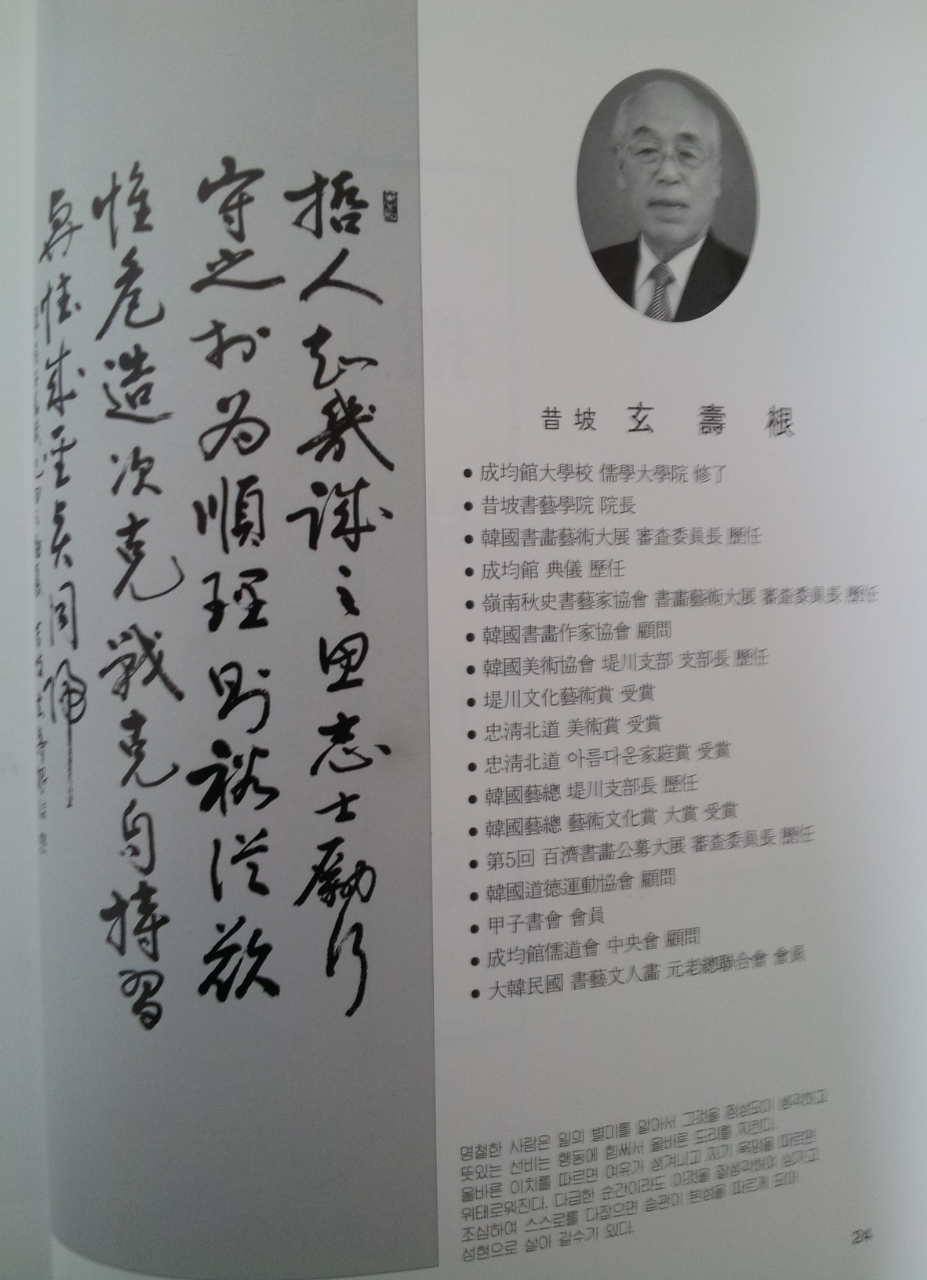 哲人知幾誠之思志士勵行
守之於為順理則裕從欲
惟危造次克戰克自持習
與性成聖賢同歸
昔坡 玄 壽 根
● 成均館大學校 儒學大學院 修了
● 昔坡書藝學院 院長
● 韓國書畫藝術大展 審査委員長 歷任
● 成均館 典儀 歷任
● 嶺南秋史書藝家協會 書畵藝術大展 審査委員長 歷任
● 韓國書畫作家協會 顧問
● 韓國美術協會 堤川支部 支部長 歷任
● 堤川文化藝術賞 受賞
● 忠淸北道 美術賞 受賞
● 忠淸北道 아름다운家庭賞 受賞
● 韓國藝總 堤川支部長 歷任
● 韓國藝總 藝術文化賞 大賞 受賞
● 第5回 百濟書畵公募大展 審査委員長 歷任
● 韓國道德運動協會 顧問
● 甲子書會 會員
● 成均館儒道會 中央會 顧問
● 大韓民國 書藝文人畵 元老總聯合會 會員
명철한 사람은 일의 별미를 알아서 그것을 정성되이 생각하고
뜻있는 선비는 행동에 힘써서 올바른 도리를 지킨다.
올바른 이치를 따르면 여유가 생겨나고 자기 욕망을 따르면
위태로워진다. 다급한 순간이라도 이것을 잘생각하며 삼가고
조심하여 스스로를 다잡으면 습관이 본성을 따르게 되어
성현으로 살아 갈수가 있다.
24